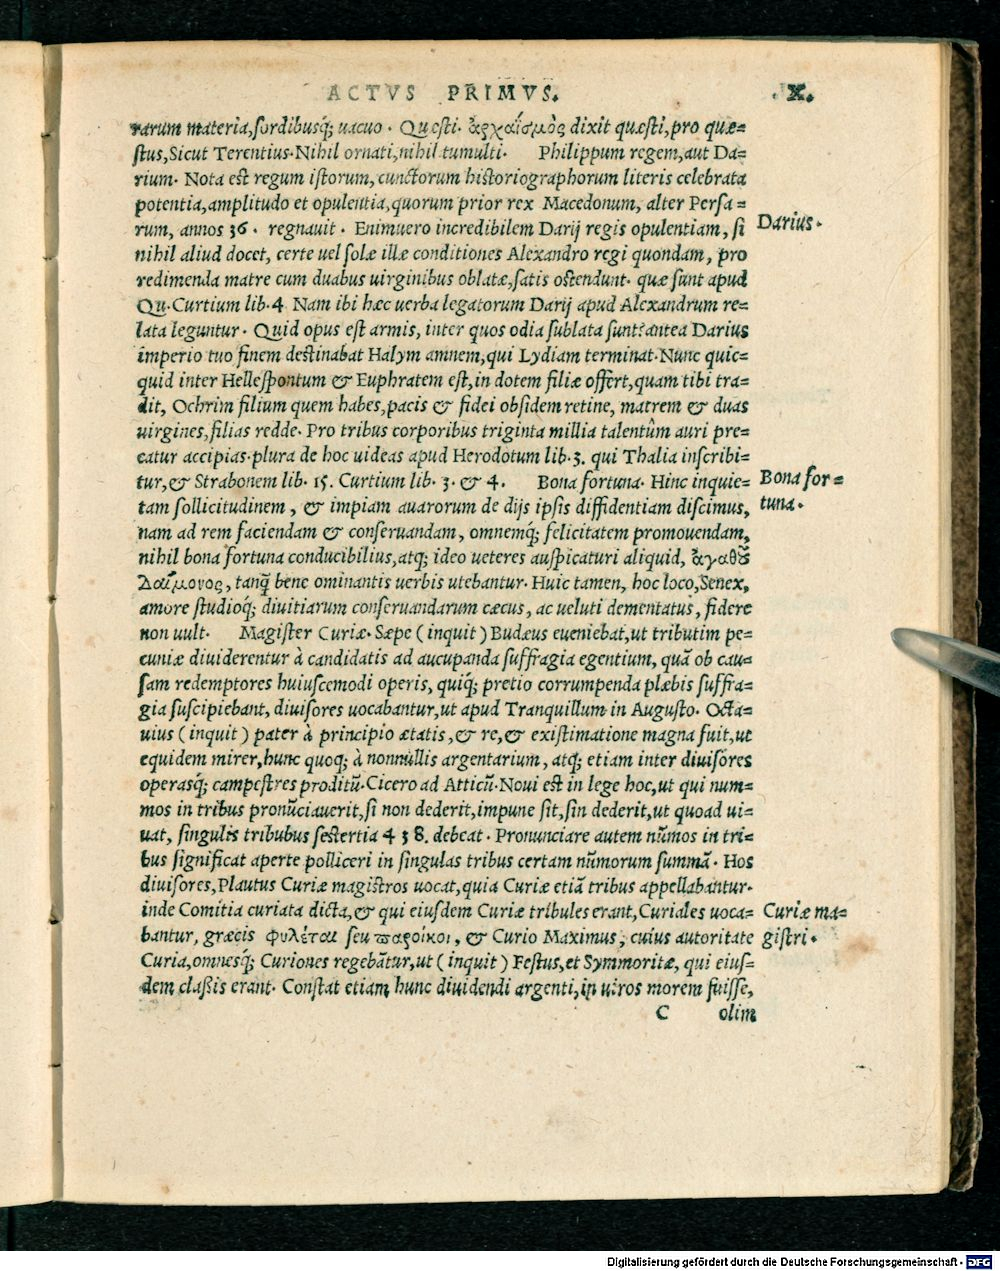 ACTVS PRIMVS.
X.
rarum materia, sordibusq; uacuo. Quæsti. ἀρχαϊσμὸς dixit quæsti, pro quæ=
stus, Sicut Terentius. Nihil ornati, nihil tumulti. Philippum regem, aut Da=
rium. Nota est regum istorum, cunctorum historiographorum literis celebrata
potentia, amplitudo et opulentia, quorum prior rex Macedonum, alter Persa=
rum, annos 36. regnauit. Enimuero incredibilem Darij regis opulentiam, si
Darius.
nihil aliud docet, certe uel solæ illæ conditiones Alexandro regi quondam, pro
redimenda matre cum duabus uirginibus oblatæ, satis ostendunt. quæ sunt apud
Qu. Curtium lib. 4 Nam ibi hæc uerba legatorum Darij apud Alexandrum re=
lata leguntur. Quid opus est armis, inter quos odia sublata sunt? antea Darius
imperio tuo finem destinabat Halym amnem, qui Lydiam terminat. Nunc quic=
quid inter Hellespontum & Euphratem est, in dotem filiæ offert, quam tibi tra=
dit, Ochrim filium quem habes, pacis & fidei obsidem retine, matrem & duas
uirgines, filias redde. Pro tribus corporibus triginta millia talentûm auri pre=
catur accipias. plura de hoc uideas apud Herodotum lib. 3. qui Thalia inscribi=
tur, & Strabonem lib. 15. Curtium lib. 3. & 4. Bona fortuna. Hinc inquie=
Bona for=
tuna.
tam sollicitudinem, & impiam auarorum de dijs ipsis diffidentiam discimus,
nam ad rem faciendam & conseruandam, omnemq; felicitatem promouendam,
nihil bona fortuna conducibilius, atq; ideo ueteres auspicaturi aliquid, ἀγαθοῦ
Δαίμονος, tanq̃ bene ominantis uerbis utebantur. Huic tamen, hoc loco, Senex,
amore studioq; diuitiarum conseruandarum cæcus, ac ueluti dementatus, fidere
non uult. Magister Curiæ. Sæpe (inquit) Budæus eueniebat, ut tributim pe=
cuniæ diuiderentur à candidatis ad aucupanda suffragia egentium, quã ob cau=
sam redemptores huiuscemodi operis, quiq; pretio corrumpenda plæbis suffra=
gia suscipiebant, diuisores uocabantur, ut apud Tranquillum in Augusto. Octa=
uius (inquit) pater à principio ætatis, & re, & existimatione magna fuit, ut
equidem mirer, hunc quoq; à nonnullis argentarium, atq; etiam inter diuisores
operasq; campestres proditũ. Cicero ad Atticũ. Noui est in lege hoc, ut qui num=
mos in tribus pronũciauerit, si non dederit, impune sit, sin dederit, ut quoad ui=
uat, singulis tribubus sestertia 438. debeat. Pronunciare autem nũmos in tri=
bus significat aperte polliceri in singulas tribus certam nũmorum summã. Hos
diuisores, Plautus Curiæ magistros uocat, quia Curiæ etiã tribus appellabantur.
inde Comitia curiata dicta, & qui eiusdem Curiæ tribules erant, Curiales uoca=
Curiæ ma=
gistri.
bantur, græcis φυλέται seu παροίκοι, & Curio Maximus, cuius autoritate
Curia, omnesq; Curiones regebãtur, ut (inquit) Festus, et Symmoritæ, qui eius=
dem claßis erant. Constat etiam hunc diuidendi argenti, in uiros morem fuisse,
C olim
Digitalisierung gefördert durch die Deutsche Forschungsgemeinschaft - DFG